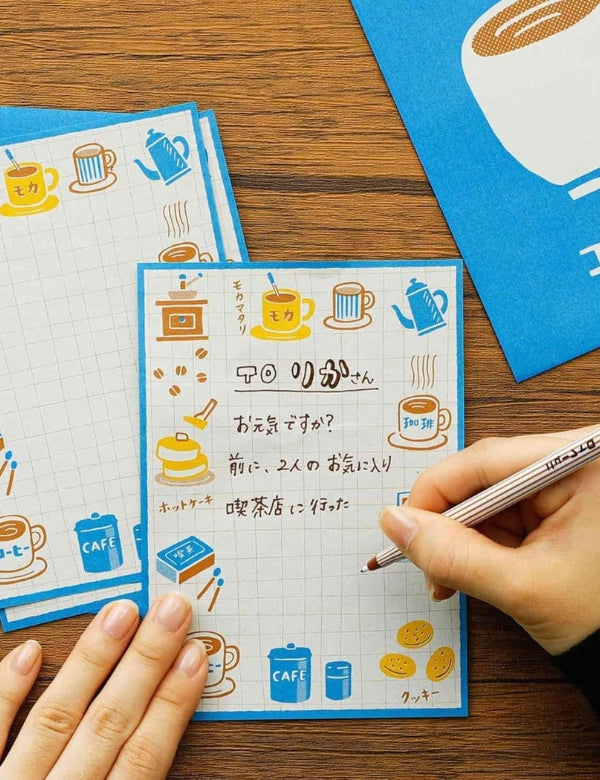 モカ
モカマタリ
モカ
TO りかさん
珈琲
お元気ですか?
前に、2人の お気に入り
ホットケーキ
喫茶店に行った
喫茶
コーヒー
CAFE
CAFE
クッキー